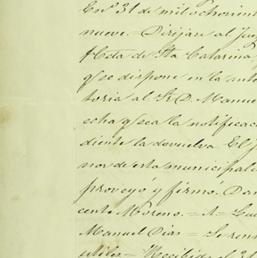 En 31 de mil ochocien
nueve. = Dirijase al Juz
de Sta Catarina
q. se dispone en la ante
toria al S. D. Manue
echa q. sea la notificac
diente la devuelva. El
nor de esta municipal
proveyo y firmó. Dar
cente Moreno. = A = Lui
Manuel Dias = Se rem
utiles = Recibido el 31